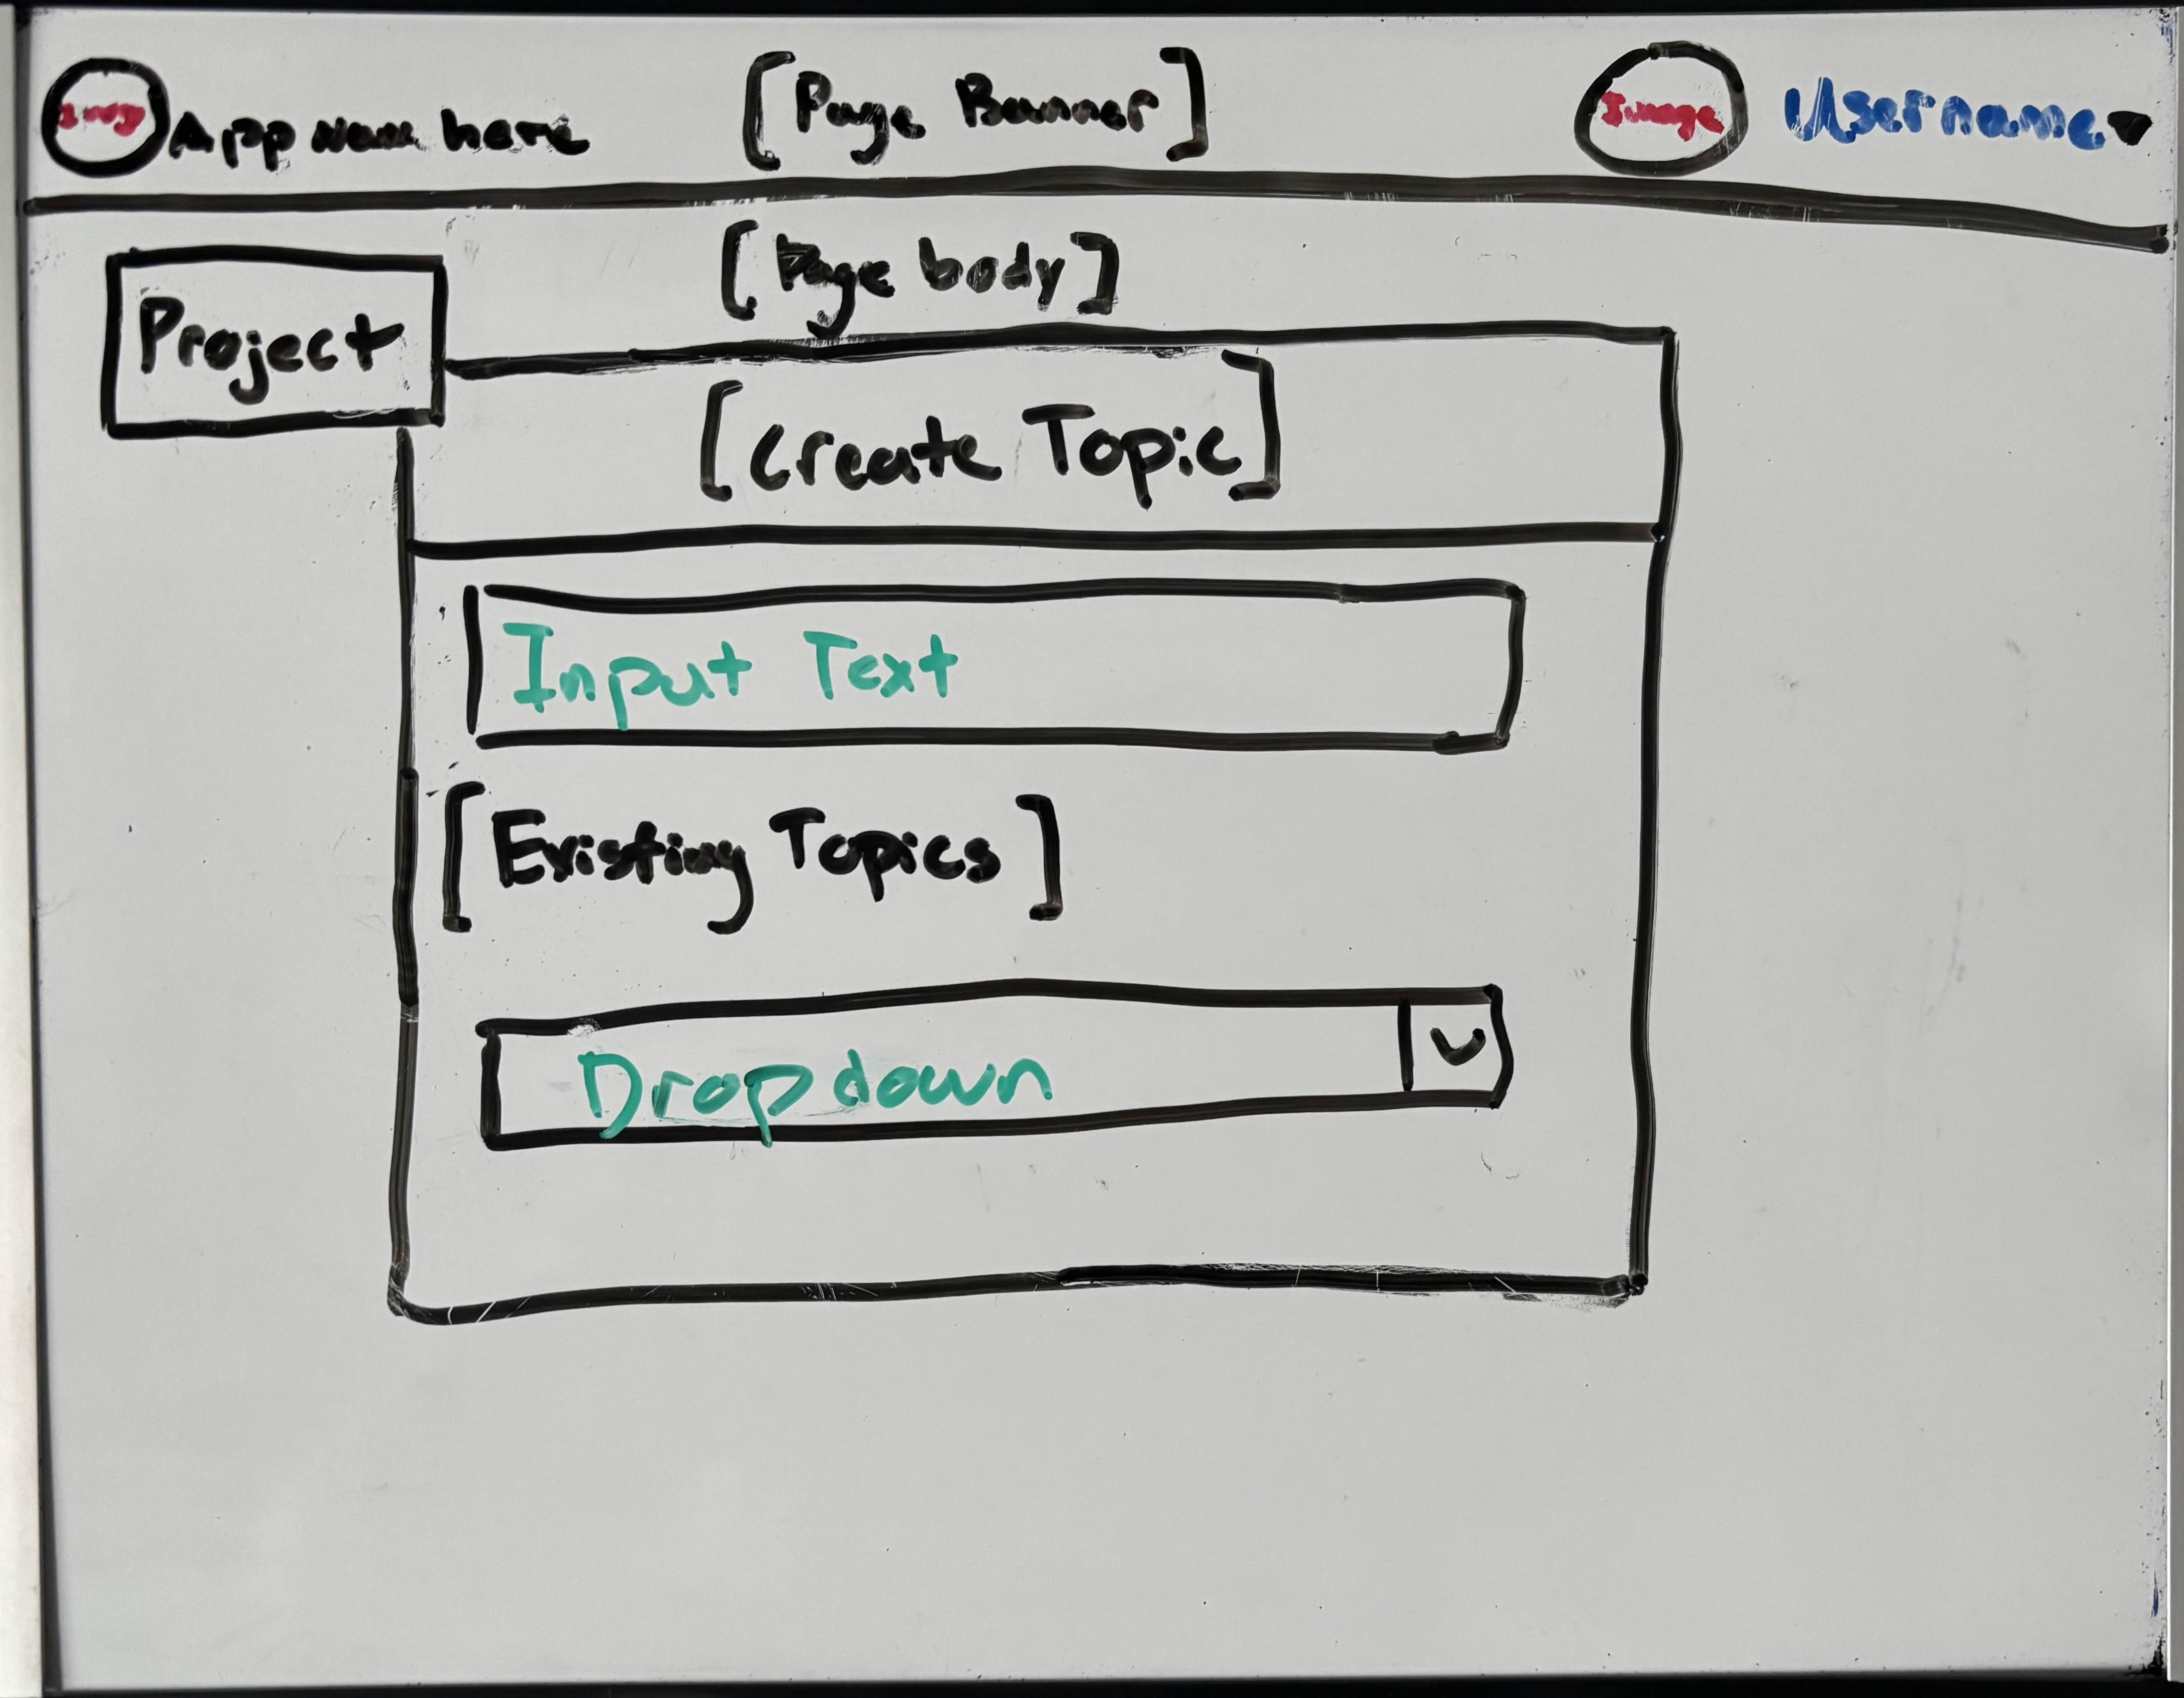 App Name here [Page Banner] Image Username
[Page body]
Project
[Create Topic]
Input Text
[Existing Topics]
Dropdown